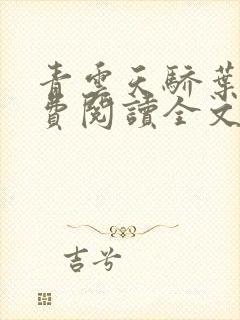 青雲天驕葉
費閱讀全文
吉兮